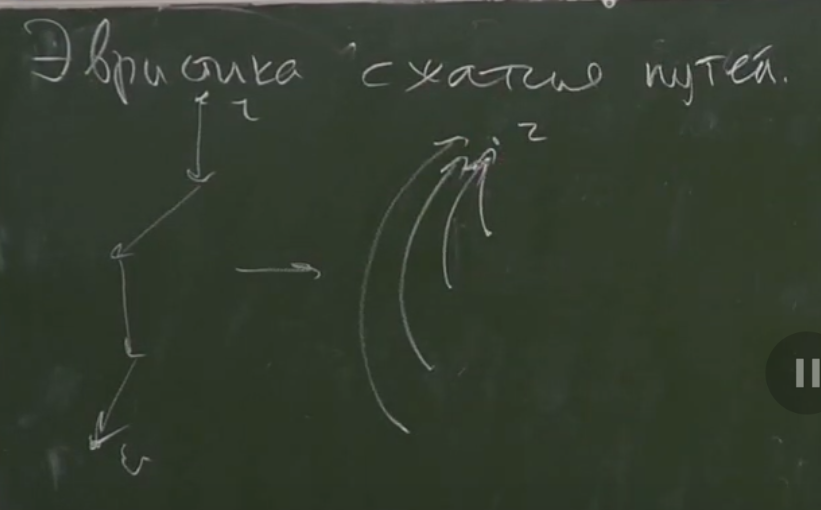 Эвристика "сжатие путей".
r
r
v